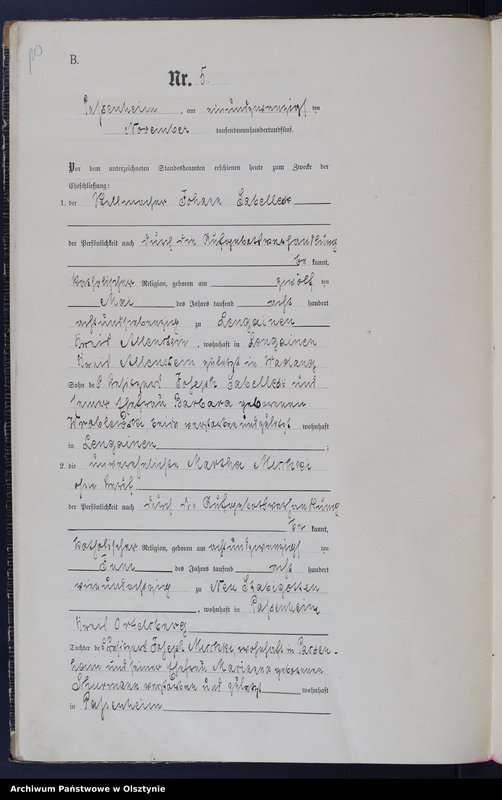 B.
Nr. 5.
Passenheim, am einundzwanzigsten
November tausendneunhundertundfünf.
Vor dem unterzeichneten Standesbeamten erschienen heute zum Zwecke der
Eheschließung:
1. der Stellmacher Johann
der Persönlichkeit nach durch die Aufgebotsverhandlung
be kannt,
katholischer Religion, geboren am zwölf ten
Mai des Jahres tausend acht hundert
achtundsiebenzig zu Lengainen
Kreis Allenstein, wohnhaft in Lengainen
Kreis Allenstein zuletzt in
Sohn des Besitzers Joseph und
seiner Ehefrau Barbara geborenen
beide verstorben und zuletzt wohnhaft
in Lengainen;
2. die unverehelichte Martha
ohne Beruf
der Persönlichkeit nach durch die Aufgebotsverhandlung
be kannt,
katholischer Religion, geboren am achtundzwanzigsten
Juni des Jahres tausend acht hundert
vierundachtzig zu Neu
, wohnhaft in Passenheim,
Kreis Ortelsburg
Tochter des Besitzers Joseph wohnhaft in Passen-
heim und seiner Ehefrau Marianna geborenen
verstorben und zuletzt wohnhaft
in Passenheim
Archiwum Państwowe w Olsztynie